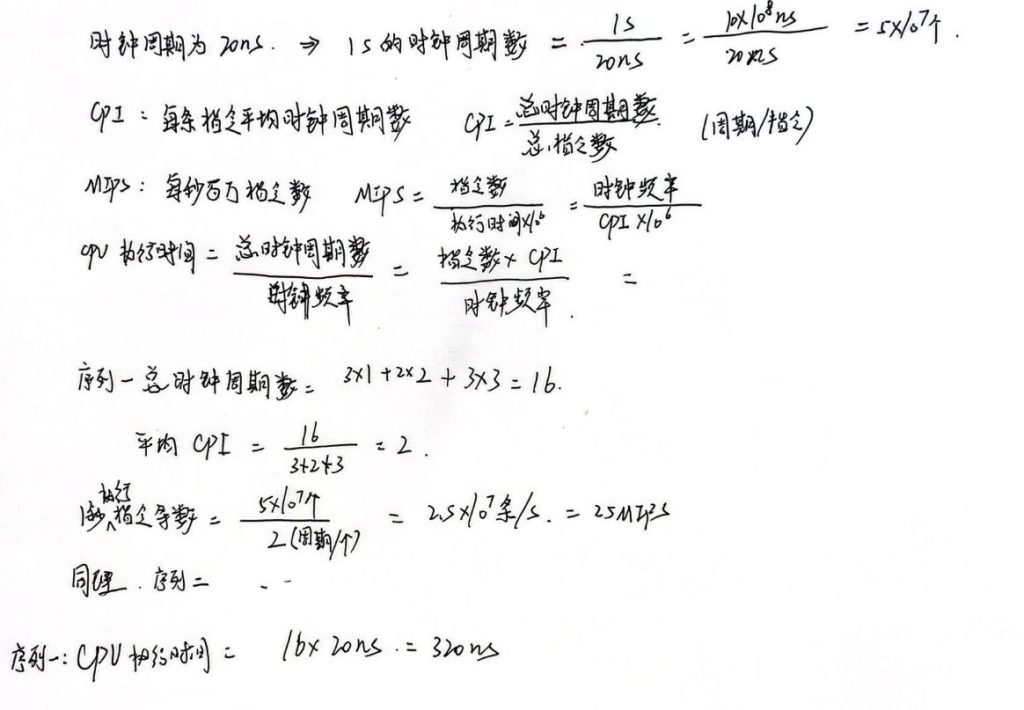 时钟周期为 20ns. ⇒ 1s的时钟周期数 = 1s/20ns = 10×10⁸ns/20ns = 5×10⁷个.
CPI: 每条指令平均时钟周期数 CPI = 总时钟周期数/总指令数 (周期/指令)
MIPS: 每秒百万指令数 MIPS = 指令数/执行时间×10⁶ = 时钟频率/CPI×10⁶
CPU 执行时间 = 总时钟周期数/时钟频率 = 指令数×CPI/时钟频率. =
序列一总时钟周期数 = 3×1+2×2+3×3=16.
平均 CPI = 16/3+2+3 = 2.
1秒执行指令条数 = 5×10⁷个/2(周期/个) = 2.5×10⁷条/s. = 25MIPS
同理. 序列二 . . -
序列一: CPU执行时间 = 16×20ns. = 320ns